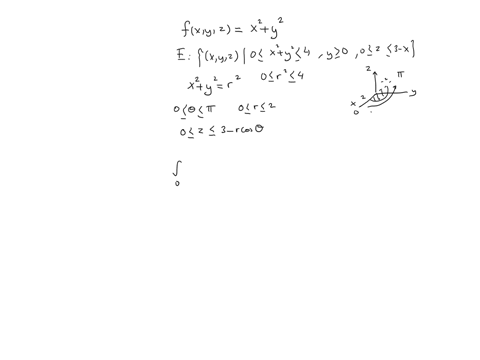 f(x,y,z) = x²+y²
E: {(x,y,z) | 0≤ x²+y² ≤4 , y≥0 , 0≤z ≤3-x}
x²+y² = r² 0≤r²≤4
0≤θ≤π 0≤r≤2
0≤z ≤ 3-rcosθ
∫
0
z
π
2
2
x
y
0